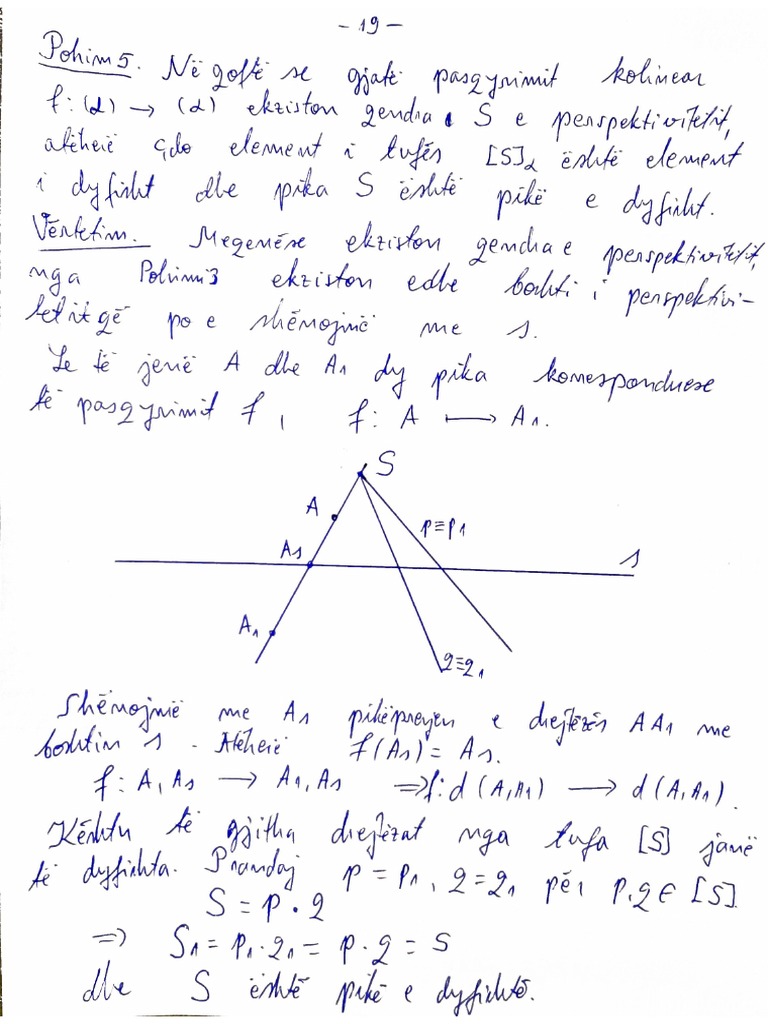 - 19 -
Pohim 5. Në qoftë se gjatë pasqyrimit kolinear
f: (α) → (α) ekziston qendra S e perspektivitetit,
atëherë çdo element i tufës [S]α është element
i dyfisht dhe pika S është pikë e dyfisht.
Vërtetim. Meqenëse ekziston qendra e perspektivitetit,
nga Pohimi 3 ekziston edhe boshti i perspektivi-
tetit që po e shënojmë me s.
Le të jenë A dhe A1 dy pika korresponduese
të pasqyrimit f, f: A ⟼ A1.
S
A
p≡p1
As
s
A1
q≡q1
Shënojmë me As pikëprerjen e drejtëzës AA1 me
boshtin s. Atëherë f(As) = As.
f: A, As → A1, As ⇒ f: d(A,A1) → d(A,A1).
Kështu të gjitha drejtëzat nga tufa [S] janë
të dyfishta. Prandaj p = p1, q = q1 për p,q ∈ [S].
S = p · q
⇒ S1 = p1 · q1 = p · q = S
dhe S është pikë e dyfishtë.